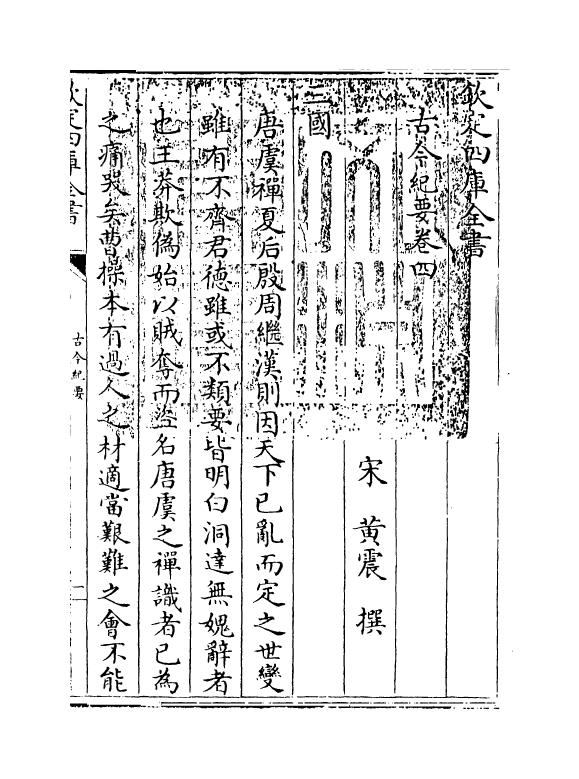 欽定四庫全書
古今紀要卷四
宋 黄震 撰
三國
唐虞禪夏后殷周繼漢則因天下已亂而定之世變
雖有不齊君徳雖或不類要皆明白洞達無媿辭者
也王莽欺偽始以賊奪而盜名唐虞之禪識者已為
之痛哭矣曹操本有過人之材適當艱難之會不能
欽定四庫全書
古今紀要
一